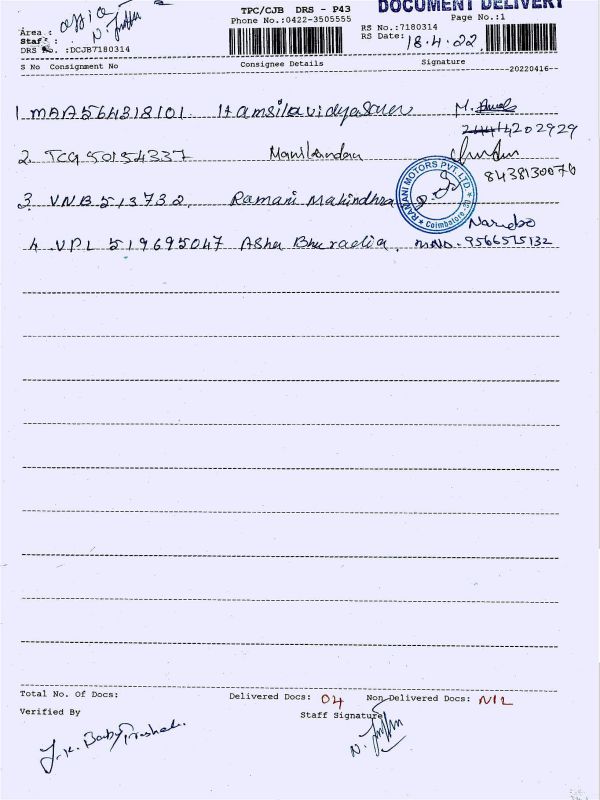 DOCUMENT DELIVERY
TPC/CJB DRS - P43
Page No.:1
Phone No.:0422-3505555
Area : office
RS No.:7180314
Staff :
RS Date: 18.4.22
DRS No. :DCJB7180314
S No Consignment No Consignee Details Signature
--20220416--
1 MAA564818101 Hamsilavidyasaren M.
4202929
2. TCG 50154337 Manikandan
8438130076
3 VNB 513732, Ramani Mahindhra
RAMANI MOTORS PVT. LTD. ★ Coimbatore
4. VPL 519695047 Asha Bhuradia, MNO. 9566515132
Total No. Of Docs: Delivered Docs: 04 Non Delivered Docs: NIL
Verified By Staff Signature